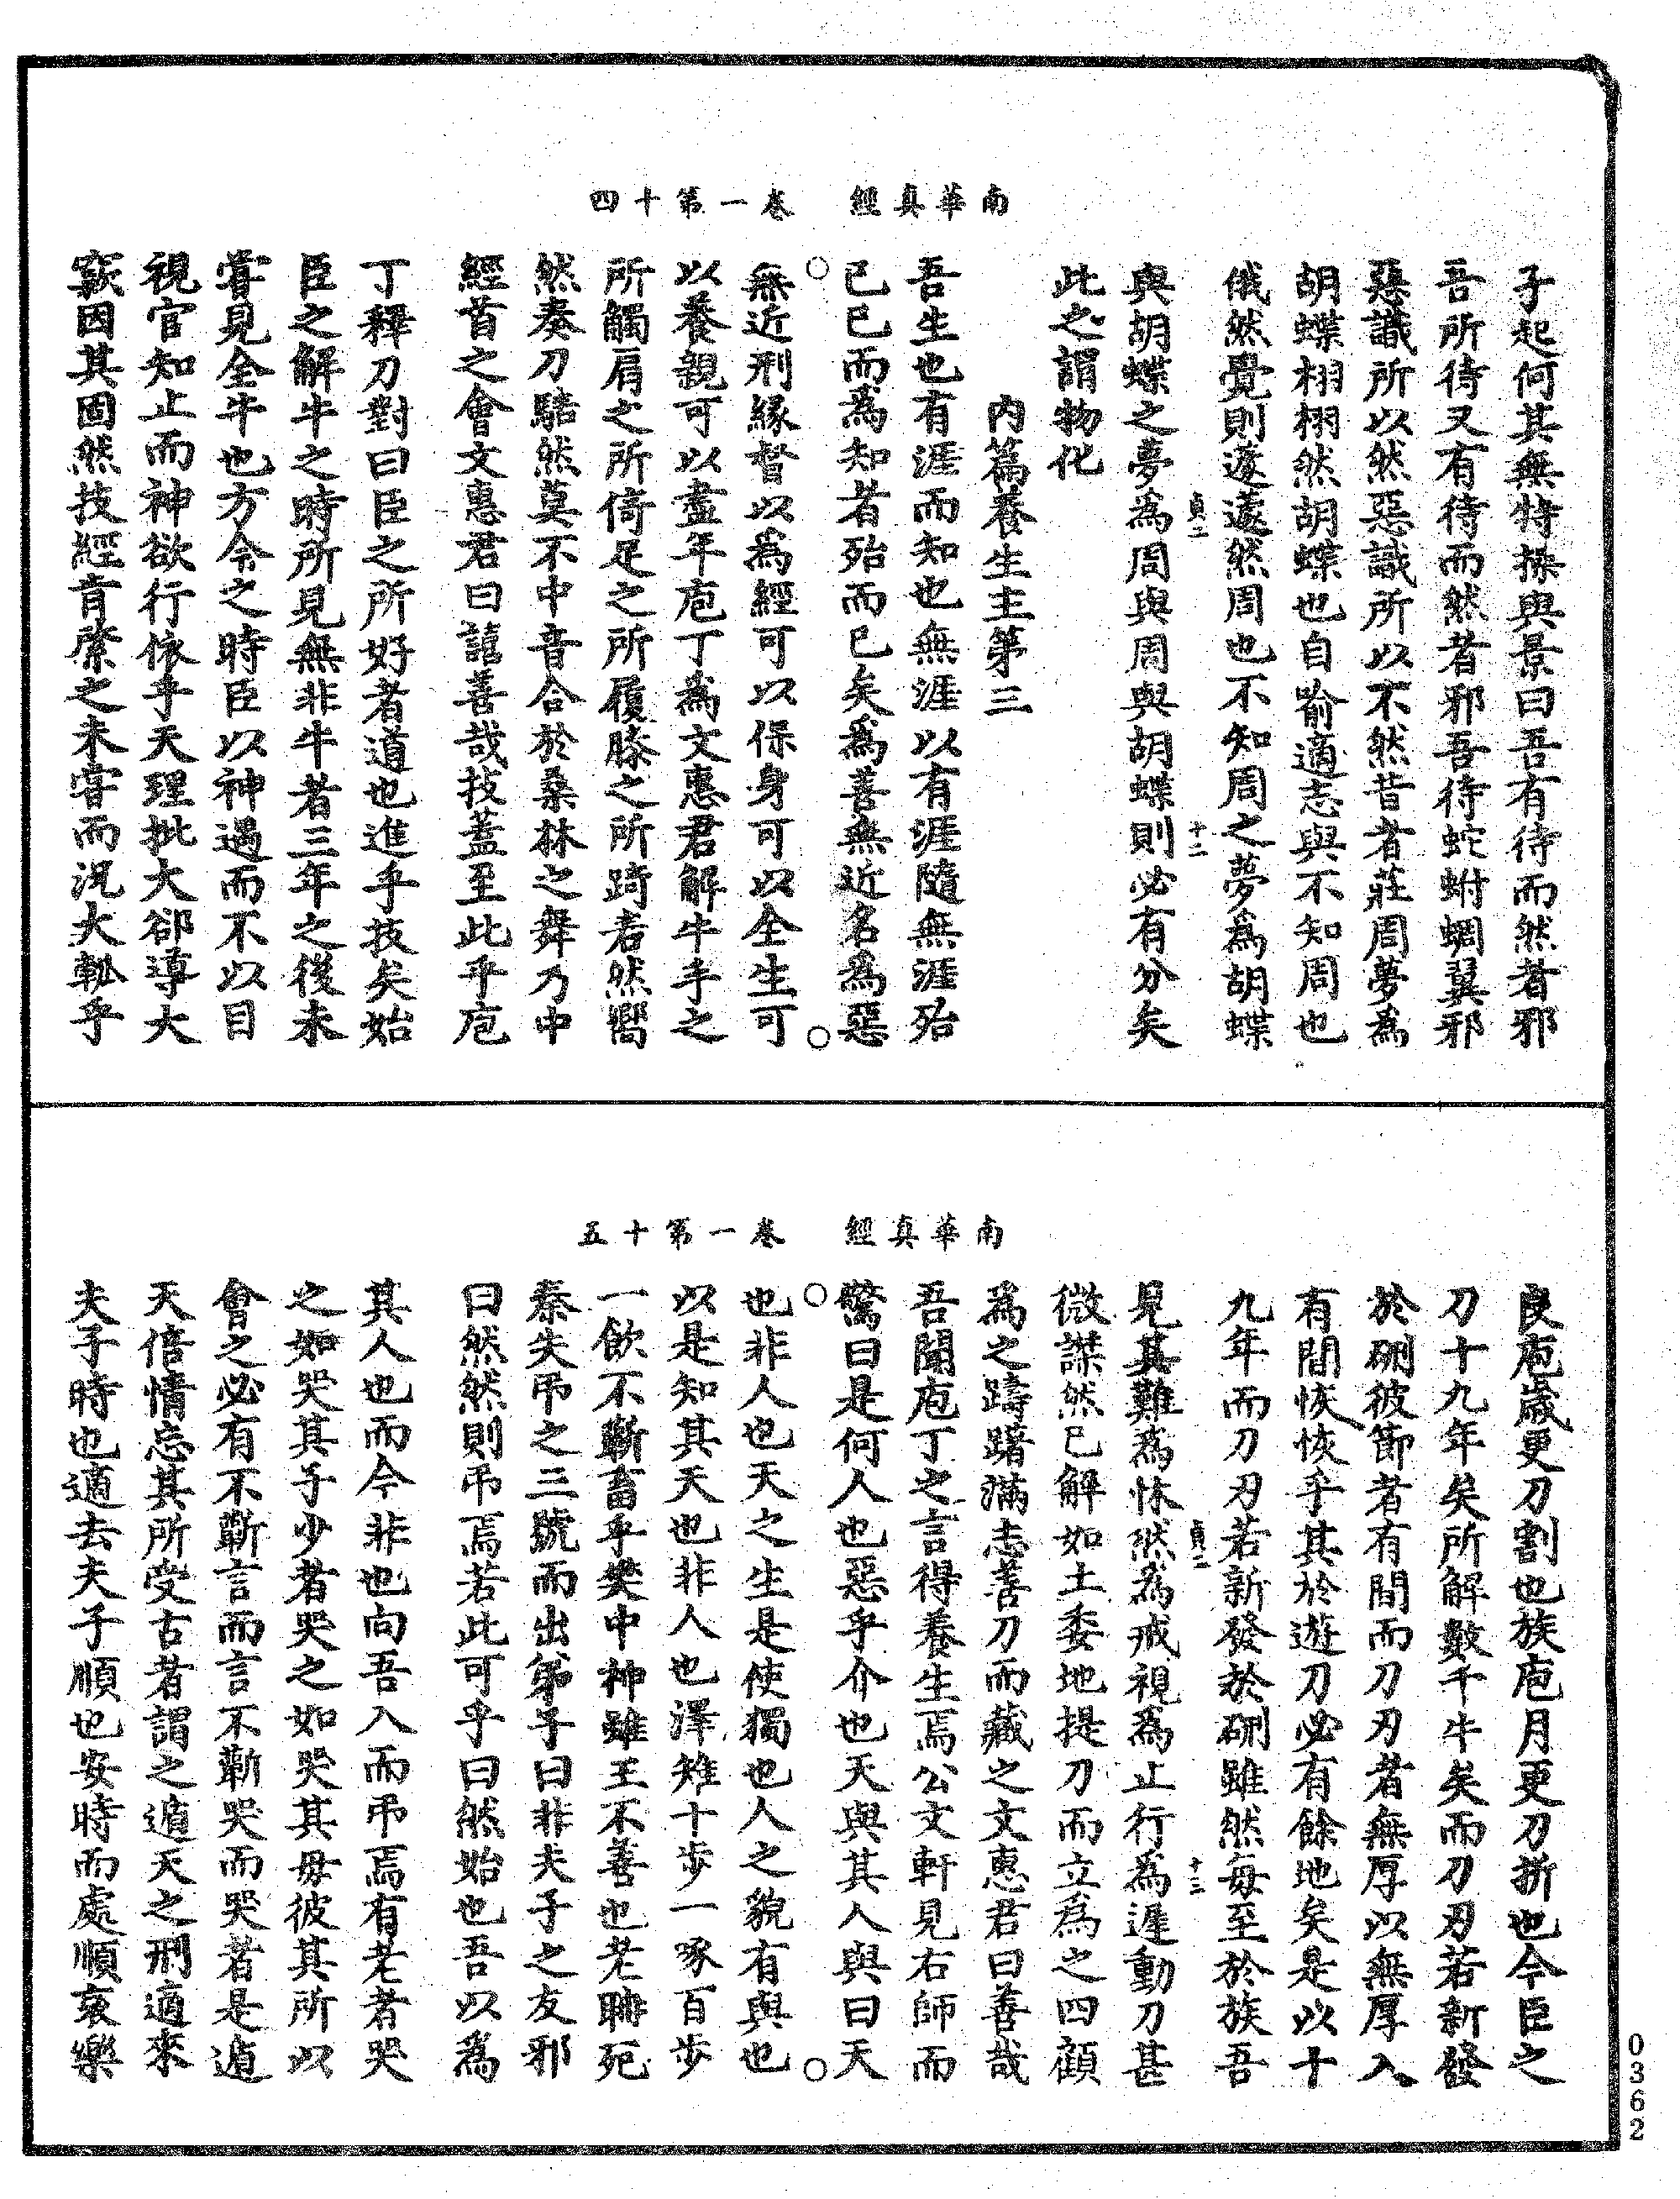 南華真經　卷一第十四
子起何其無特操與景曰吾有待而然者邪
吾所待又有待而然者邪吾待蛇蚹蜩翼邪
惡識所以然惡識所以不然昔者莊周夢為
胡蝶栩栩然胡蝶也自喻適志與不知周也
俄然覺則蘧蘧然周也不知周之夢為胡蝶
貞二　十二
與胡蝶之夢為周與周與胡蝶則必有分矣
此之謂物化
內篇養生主第三
吾生也有涯而知也無涯以有涯隨無涯殆
已已而為知者殆而已矣為善無近名為惡
○　○
無近刑緣督以為經可以保身可以全生可
以養親可以盡年庖丁為文惠君解牛手之
所觸肩之所倚足之所履膝之所踦砉然嚮
然奏刀騞然莫不中音合於桑林之舞乃中
經首之會文惠君曰譆善哉技蓋至此乎庖
丁釋刀對曰臣之所好者道也進乎技矣始
臣之解牛之時所見無非牛者三年之後未
嘗見全牛也方今之時臣以神遇而不以目
視官知止而神欲行依乎天理批大卻導大
窾因其固然技經肯綮之未嘗而況大軱乎
南華真經　卷一第十五
良庖歲更刀割也族庖月更刀折也今臣之
刀十九年矣所解數千牛矣而刀刃若新發
於硎彼節者有間而刀刃者無厚以無厚入
有間恢恢乎其於遊刀必有餘地矣是以十
九年而刀刃若新發於硎雖然每至於族吾
貞二　十三
見其難為怵然為戒視為止行為遲動刀甚
微謋然已解如土委地提刀而立為之四顧
為之躊躇滿志善刀而藏之文惠君曰善哉
吾聞庖丁之言得養生焉公文軒見右師而
驚曰是何人也惡乎介也天與其人與曰天
○　○
也非人也天之生是使獨也人之貌有與也
以是知其天也非人也澤雉十步一啄百步
一飲不蘄畜乎樊中神雖王不善也老聃死
秦失弔之三號而出弟子曰非夫子之友邪
曰然然則弔焉若此可乎曰然始也吾以為
其人也而今非也向吾入而弔焉有老者哭
之如哭其子少者哭之如哭其母彼其所以
會之必有不蘄言而言不蘄哭而哭者是遁
天倍情忘其所受古者謂之遁天之刑適來
夫子時也適去夫子順也安時而處順哀樂
0362